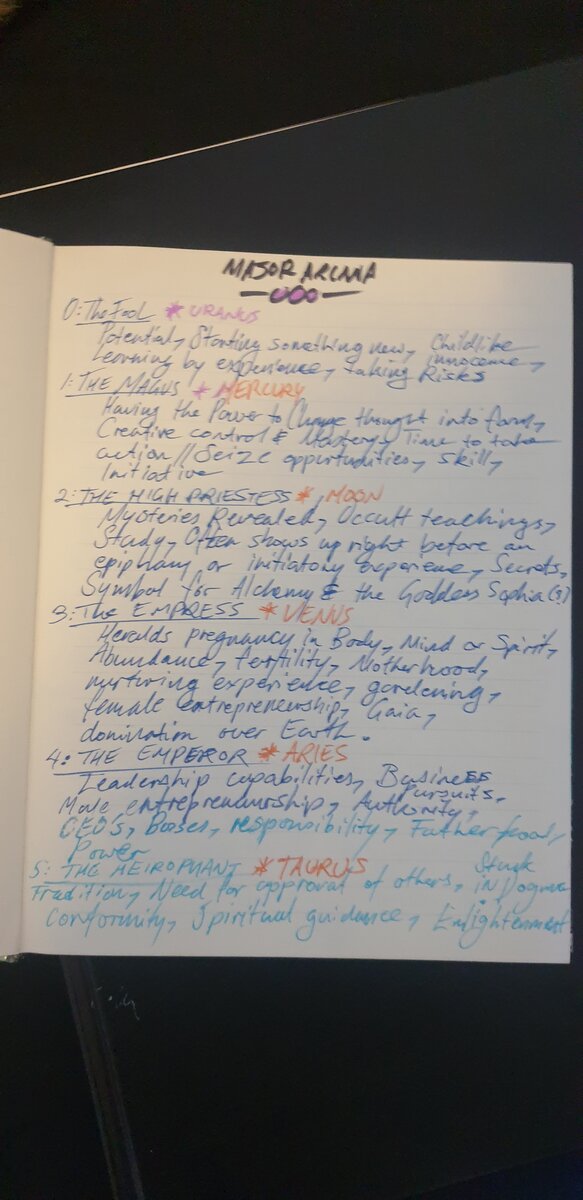 MAJOR ARCANA
0: The Fool * URANUS
Potential, Starting something new, Childlike
Learning by experience, taking Risks innocence,
1: THE MAGUS * MERCURY
Having the Power to Change thought into form,
Creative control & Mastery, time to take
action // Seize opportunities, skill,
Initiative
2: THE HIGH PRIESTESS * MOON
Mysteries Revealed, Occult teachings,
Study, Often shows up right before an
epiphany or initiatory experience, Secrets,
Symbol for Alchemy & the Goddess Sophia(?)
3: The EMPRESS * VENUS
Heralds pregnancy in Body, Mind or Spirit,
Abundance, fertility, Motherhood,
nurturing experience, gardening,
female entrepreneurship, Gaia,
domination over Earth.
4: THE EMPEROR * ARIES
Leadership capabilities, Business
Pursuits,
Male entrepreneurship, Authority,
CEO'S, Bosses, responsibility, Fatherhood,
Power
5: THE HEIROPHANT * TAURUS Stuck
Tradition, Need for approval of others, IN Dogma
Conformity, Spiritual guidance, Enlightenment